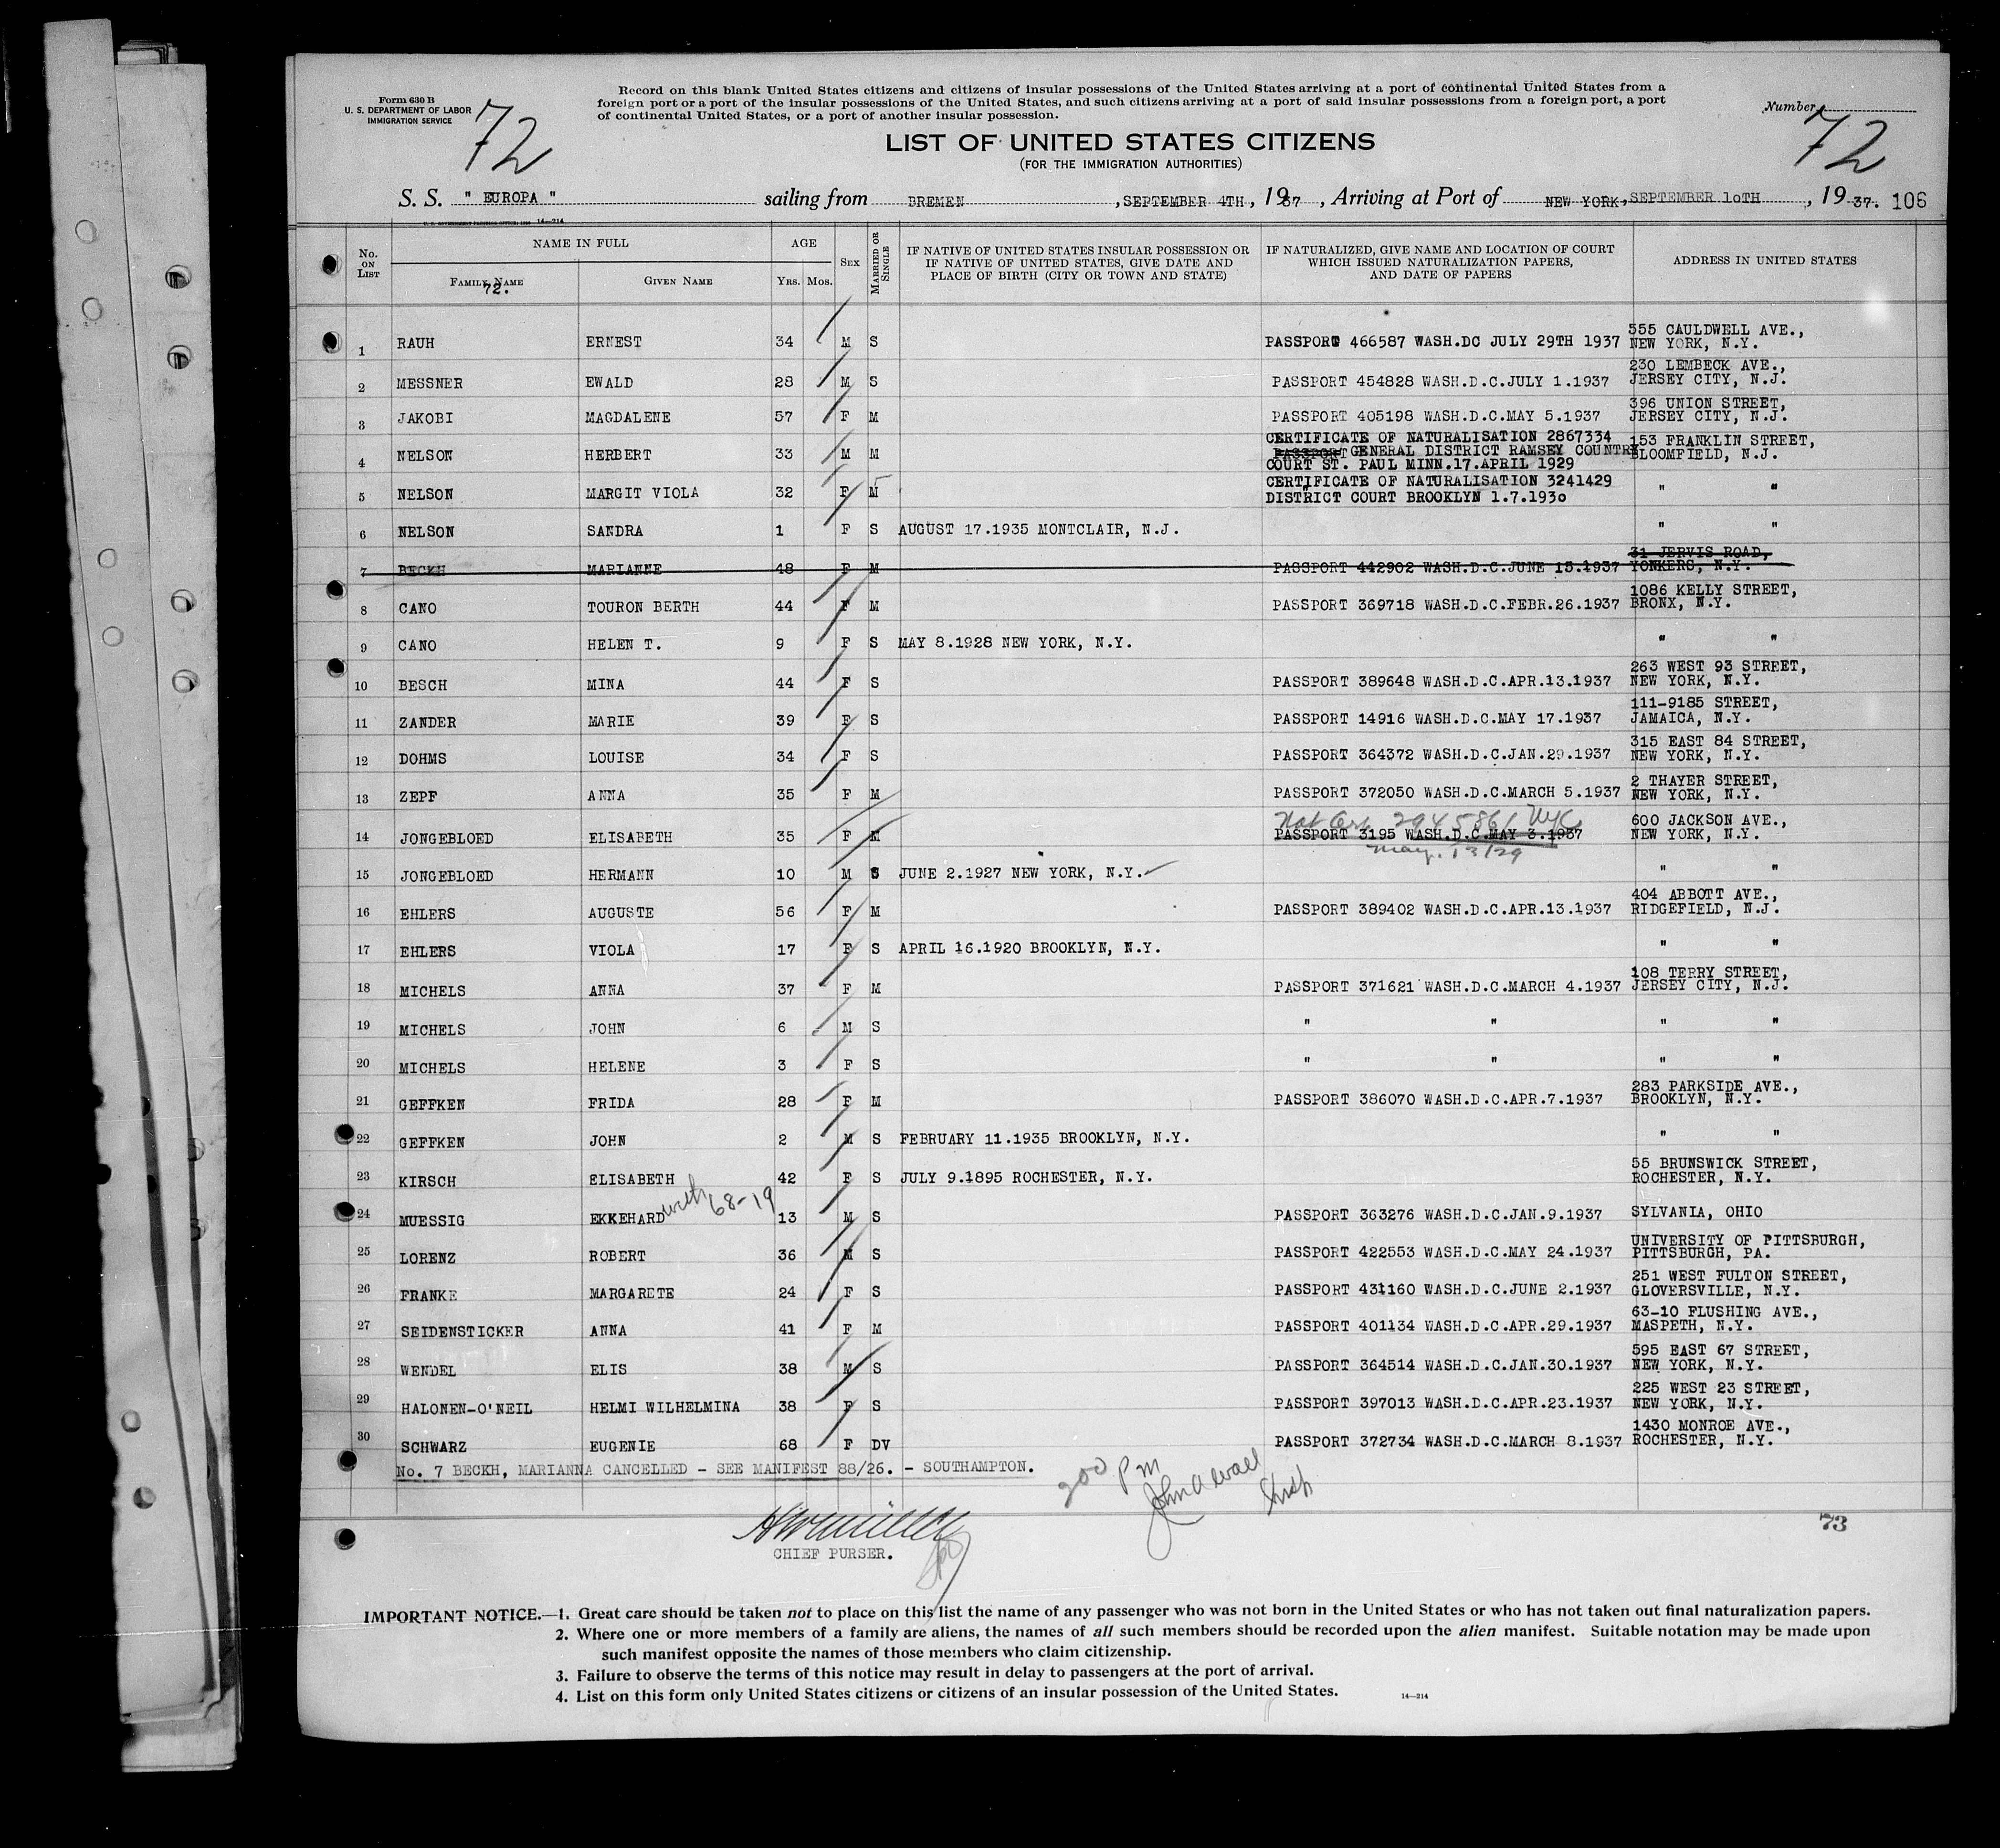 Form 630 B
U. S. DEPARTMENT OF LABOR
IMMIGRATION SERVICE
72
Record on this blank United States citizens and citizens of insular possessions of the United States arriving at a port of continental United States from a
foreign port or a port of the insular possessions of the United States, and such citizens arriving at a port of said insular possessions from a foreign port, a port
of continental United States, or a port of another insular possession.
Number
72
LIST OF UNITED STATES CITIZENS
(FOR THE IMMIGRATION AUTHORITIES)
S. S. " EUROPA " sailing from BREMEN , SEPTEMBER 4TH , 1937 , Arriving at Port of NEW YORK, SEPTEMBER 10TH , 19 37. 106
No. ON LIST
NAME IN FULL
FAMILY NAME
72.
GIVEN NAME
AGE
YRS. MOS.
SEX
MARRIED OR SINGLE
IF NATIVE OF UNITED STATES INSULAR POSSESSION OR
IF NATIVE OF UNITED STATES, GIVE DATE AND
PLACE OF BIRTH (CITY OR TOWN AND STATE)
IF NATURALIZED, GIVE NAME AND LOCATION OF COURT
WHICH ISSUED NATURALIZATION PAPERS,
AND DATE OF PAPERS
ADDRESS IN UNITED STATES
1 RAUH ERNEST 34 M S PASSPORT 466587 WASH.DC JULY 29TH 1937 555 CAULDWELL AVE.,
NEW YORK, N.Y.
2 MESSNER EWALD 28 M S PASSPORT 454828 WASH.D.C.JULY 1.1937 230 LEMBECK AVE.,
JERSEY CITY, N.J.
3 JAKOBI MAGDALENE 57 F M PASSPORT 405198 WASH.D.C.MAY 5.1937 396 UNION STREET,
JERSEY CITY, N.J.
4 NELSON HERBERT 33 M M CERTIFICATE OF NATURALISATION 2867334 153 FRANKLIN STREET,
PASSPORT GENERAL DISTRICT RAMSEY COUNTRY BLOOMFIELD, N.J.
COURT ST. PAUL MINN.17.APRIL 1929
5 NELSON MARGIT VIOLA 32 F M CERTIFICATE OF NATURALISATION 3241429 " "
DISTRICT COURT BROOKLYN 1.7.1930
6 NELSON SANDRA 1 F S AUGUST 17.1935 MONTCLAIR, N.J. " "
7 BECKH MARIANNE 48 F M PASSPORT 442902 WASH.D.C.JUNE 15.1937 31 JERVIS ROAD,
YONKERS, N.Y.
8 CANO TOURON BERTH 44 F M PASSPORT 369718 WASH.D.C.FEBR.26.1937 1086 KELLY STREET,
BRONX, N.Y.
9 CANO HELEN T. 9 F S MAY 8.1928 NEW YORK, N.Y. " "
10 BESCH MINA 44 F S PASSPORT 389648 WASH.D.C.APR.13.1937 263 WEST 93 STREET,
NEW YORK, N.Y.
11 ZANDER MARIE 39 F S PASSPORT 14916 WASH.D.C.MAY 17.1937 111-9185 STREET,
JAMAICA, N.Y.
12 DOHMS LOUISE 34 F S PASSPORT 364372 WASH.D.C.JAN.29.1937 315 EAST 84 STREET,
NEW YORK, N.Y.
13 ZEPF ANNA 35 F M PASSPORT 372050 WASH.D.C.MARCH 5.1937 2 THAYER STREET,
NEW YORK, N.Y.
Nat Cer. 2945861 NYC
14 JONGEBLOED ELISABETH 35 F M PASSPORT 3195 WASH.D.C.MAY 3.1937 600 JACKSON AVE.,
NEW YORK, N.Y.
May. 13/29
15 JONGEBLOED HERMANN 10 M S JUNE 2.1927 NEW YORK, N.Y. " "
16 EHLERS AUGUSTE 56 F M PASSPORT 389402 WASH.D.C.APR.13.1937 404 ABBOTT AVE.,
RIDGEFIELD, N.J.
17 EHLERS VIOLA 17 F S APRIL 16.1920 BROOKLYN, N.Y. " "
18 MICHELS ANNA 37 F M PASSPORT 371621 WASH.D.C.MARCH 4.1937 108 TERRY STREET,
JERSEY CITY, N.J.
19 MICHELS JOHN 6 M S " " " "
20 MICHELS HELENE 3 F S " " " "
21 GEFFKEN FRIDA 28 F M PASSPORT 386070 WASH.D.C.APR.7.1937 283 PARKSIDE AVE.,
BROOKLYN, N.Y.
22 GEFFKEN JOHN 2 M S FEBRUARY 11.1935 BROOKLYN, N.Y. " "
23 KIRSCH ELISABETH 42 F S JULY 9.1895 ROCHESTER, N.Y. 55 BRUNSWICK STREET,
ROCHESTER, N.Y.
24 MUESSIG EKKEHARD with 68-19 13 M S PASSPORT 363276 WASH.D.C.JAN.9.1937 SYLVANIA, OHIO
25 LORENZ ROBERT 36 M S PASSPORT 422553 WASH.D.C.MAY 24.1937 UNIVERSITY OF PITTSBURGH,
PITTSBURGH, PA.
26 FRANKE MARGARETE 24 F S PASSPORT 431160 WASH.D.C.JUNE 2.1937 251 WEST FULTON STREET,
GLOVERSVILLE, N.Y.
27 SEIDENSTICKER ANNA 41 F M PASSPORT 401134 WASH.D.C.APR.29.1937 63-10 FLUSHING AVE.,
MASPETH, N.Y.
28 WENDEL ELIS 38 M S PASSPORT 364514 WASH.D.C.JAN.30.1937 595 EAST 67 STREET,
NEW YORK, N.Y.
29 HALONEN-O'NEIL HELMI WILHELMINA 38 F S PASSPORT 397013 WASH.D.C.APR.23.1937 225 WEST 23 STREET,
NEW YORK, N.Y.
30 SCHWARZ EUGENIE 68 F DV PASSPORT 372734 WASH.D.C.MARCH 8.1937 1430 MONROE AVE.,
ROCHESTER, N.Y.
No. 7 BECKH, MARIANNA CANCELLED - SEE MANIFEST 88/26. - SOUTHAMPTON.
200 PM
John A Wall
Insp
73
CHIEF PURSER.
IMPORTANT NOTICE.—1. Great care should be taken not to place on this list the name of any passenger who was not born in the United States or who has not taken out final naturalization papers.
2. Where one or more members of a family are aliens, the names of all such members should be recorded upon the alien manifest. Suitable notation may be made upon
such manifest opposite the names of those members who claim citizenship.
3. Failure to observe the terms of this notice may result in delay to passengers at the port of arrival.
4. List on this form only United States citizens or citizens of an insular possession of the United States.
14—214